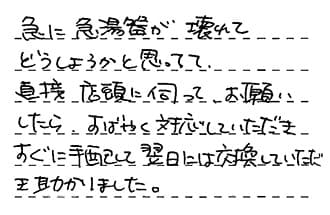 急に 急湯器が 壊れて
どうしょうかと思ってて、
直接 店頭に伺って、お願い
したら、すばやく対応していただき
すぐに手配して 翌日には交換していただ
き助かりました。